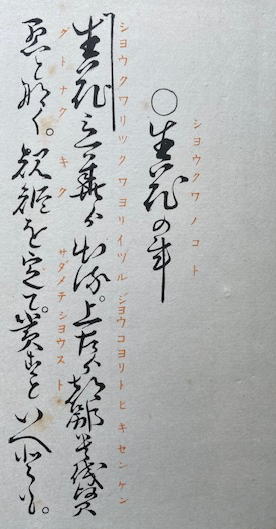 シヨウクワノコト
○生花の事
シヨウクワリツクワヨリイヅル ジヨウコヨリトヒキセンケン
生花立華ゟ出る。上古ゟ都鄙貴賤賢
グトナク キク サダメテシヨウスト
愚となく。規矩を定て。賞すといへども。